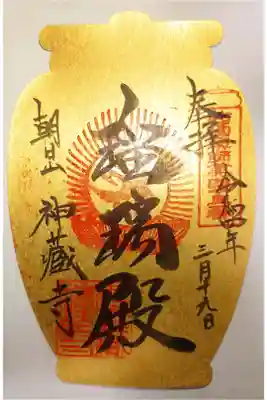 奉拝 令和四年
三月十九日
瑠璃殿
朝日山 神藏寺